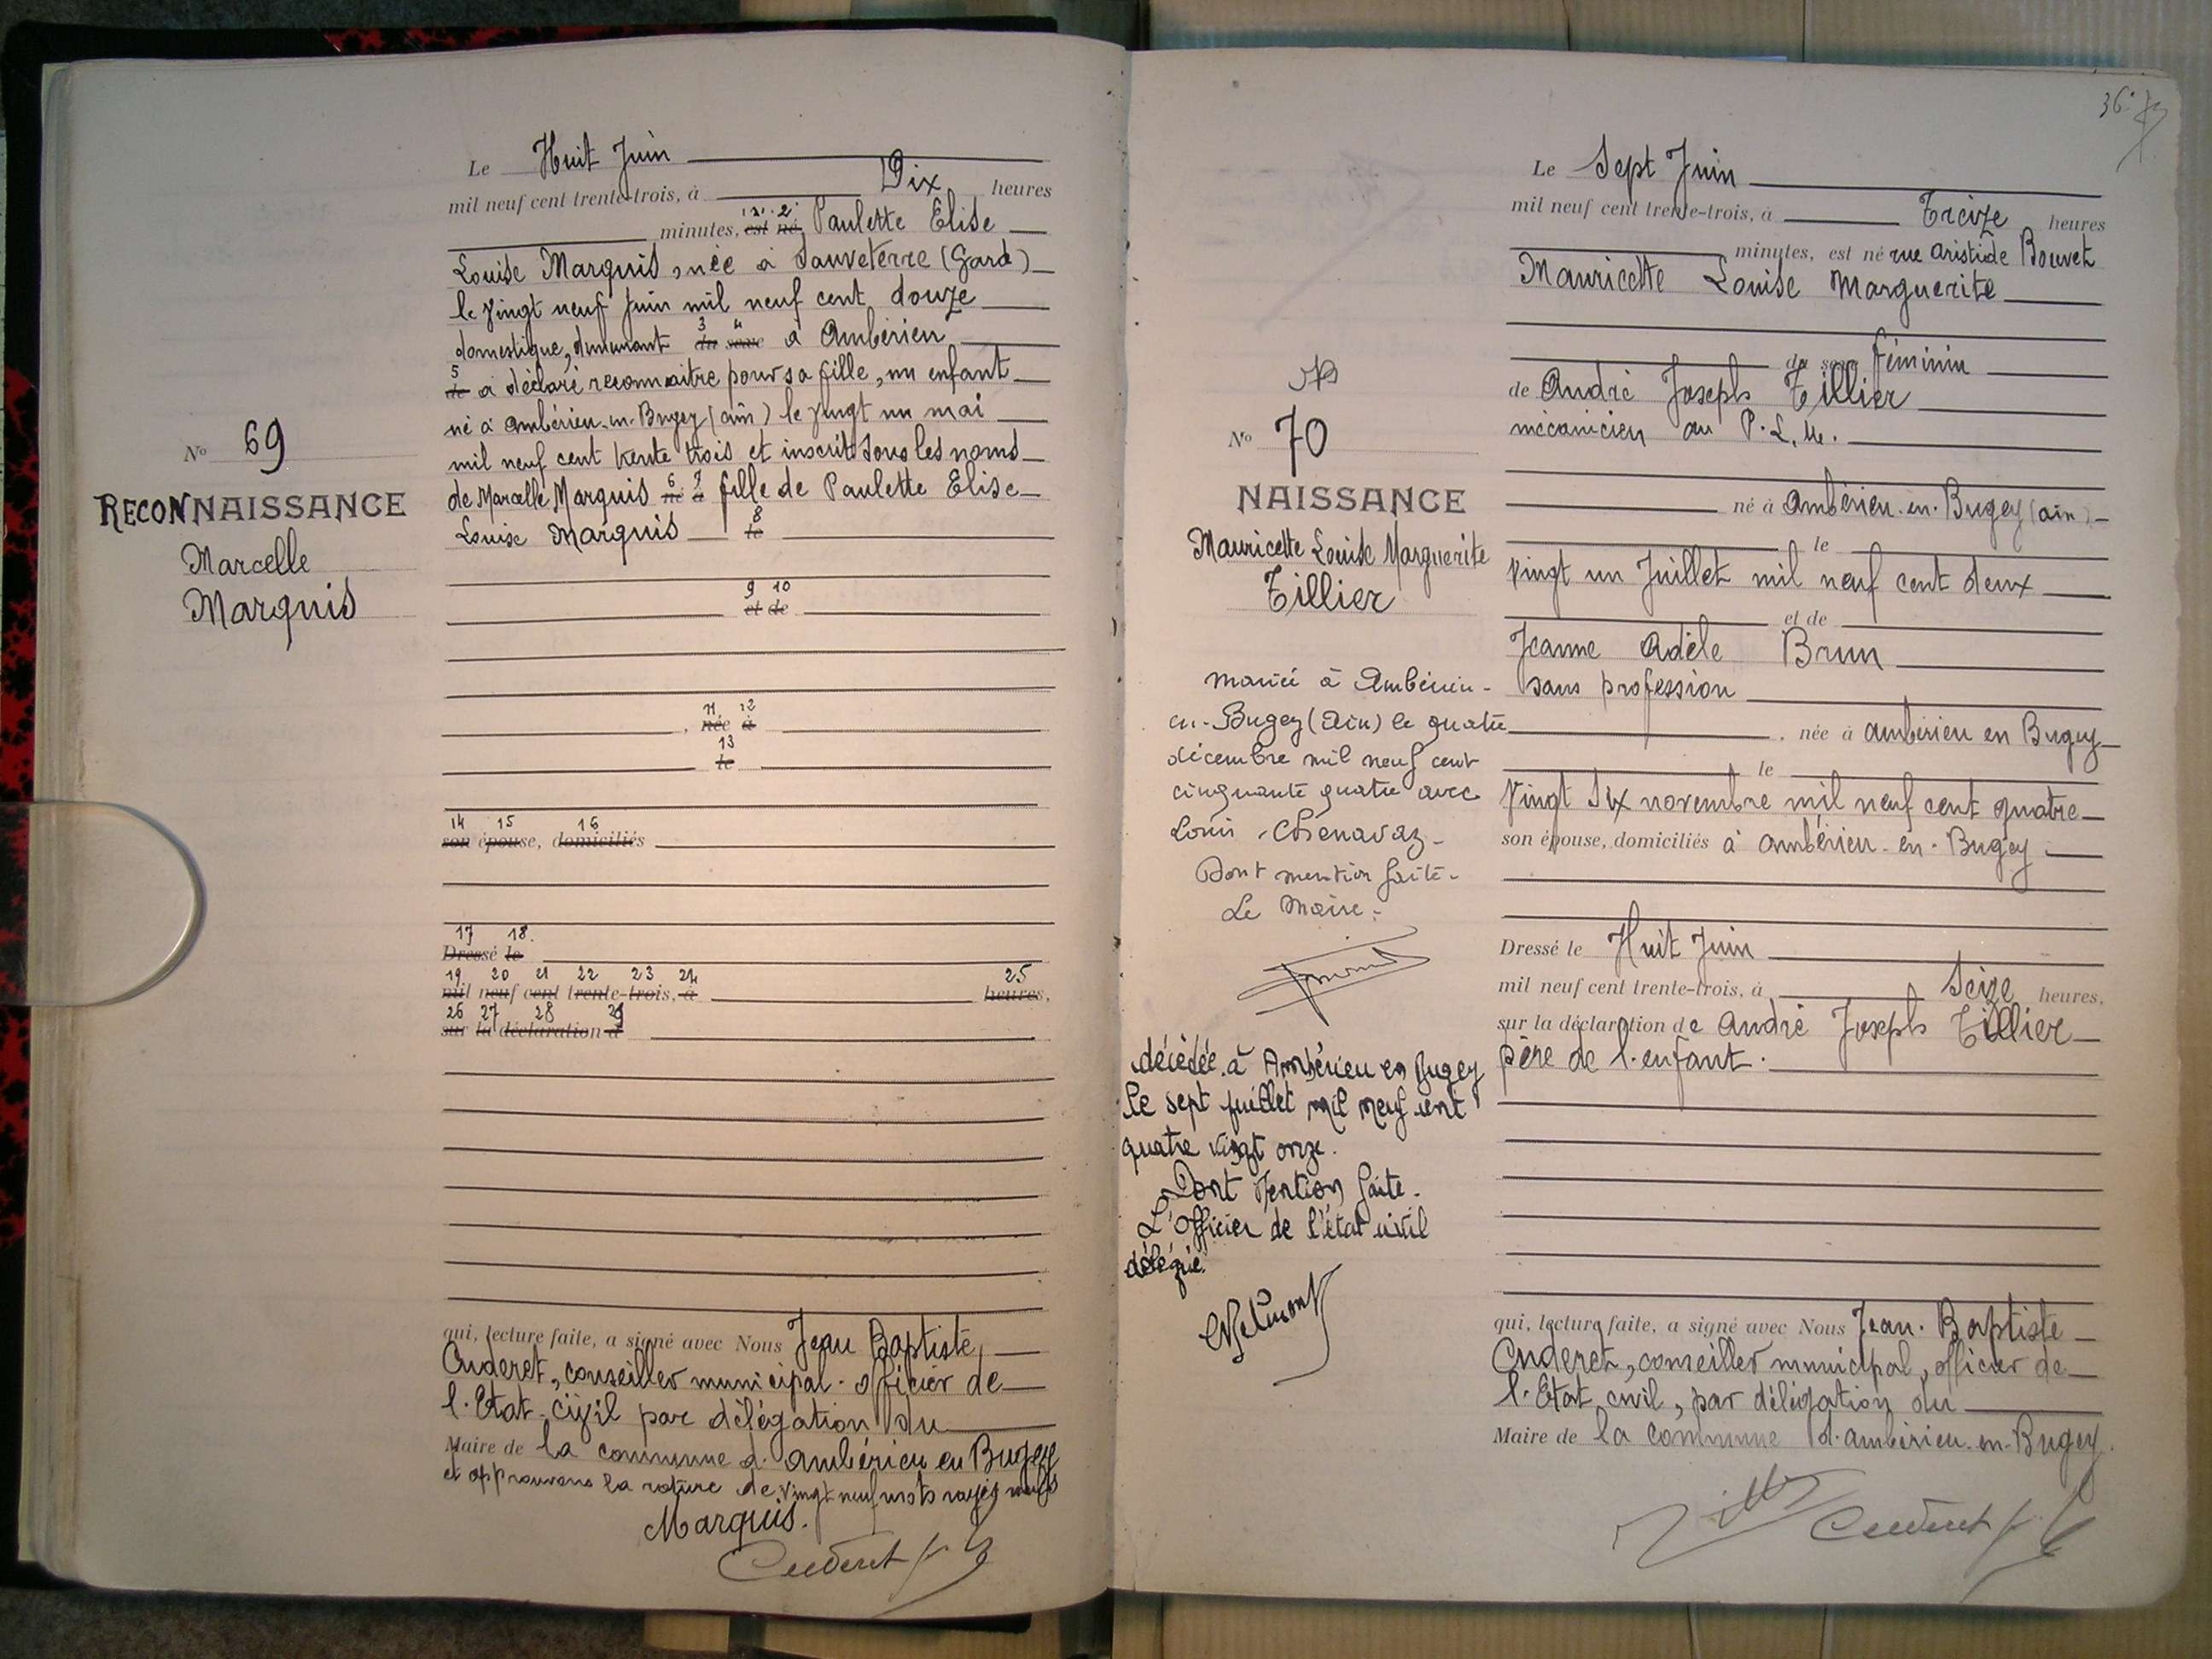 Le Huit Juin
mil neuf cent trente-trois, à Dix heures
1 2
minutes, est né Paulette Elise
Louise Marquis, née à Sauveterre (Gard)
le vingt neuf Juin mil neuf cent douze
3 4
domestique, demeurant du sexe à Ambérieu
5
de a déclaré reconnaitre pour sa fille, un enfant
né à Ambérieu-en-Bugey (ain) le vingt un mai
mil neuf cent trente trois et inscrit sous les noms
6 7
de Marcelle Marquis né à fille de Paulette Elise
8
Louise Marquis le
9 10
et de
11 12
, née à
13
le
14 15 16
son épouse, domiciliés
17 18
Dressé le
19 20 21 22 23 24 25
mil neuf cent trente-trois, à heures,
26 27 28 29
sur la déclaration d
qui, lecture faite, a signé avec Nous Jean Baptiste
Cuderet, conseiller municipal. officier de
l'Etat-civil par délégation du
Maire de la commune d'Ambérieu en Bugey
et approuvons la rature de vingt neuf mots rayés nuls
Marquis.
Cuderet
No 69
RECONNAISSANCE
Marcelle
Marquis
36
No 70
NAISSANCE
Mauricette Louise Marguerite
Tillier
Mariée à Ambérieu-
en-Bugey (Ain) le quatre
décembre mil neuf cent
cinquante quatre avec
Louis Chenavaz-
Dont mention faite-
Le Maire:
décédée à Ambérieu en Bugey
le sept juillet mil neuf cent
quatre vingt onze.
Dont Mention faite.
L'Officier de l'état civil
délégué.
Le Sept Juin
mil neuf cent trente-trois, à Treize heures
minutes, est né rue Aristide Bouvet
Mauricette Louise Marguerite
du sexe féminin
de André Joseph Tillier
mécanicien au P.L.M.
né à Ambérieu-en-Bugey (ain)
le
vingt un Juillet mil neuf cent deux
et de
Jeanne Adèle Brun
sans profession
, née à Ambérieu en Bugey
le
vingt six novembre mil neuf cent quatre
son épouse, domiciliés à Ambérieu-en-Bugey
Dressé le Huit Juin
mil neuf cent trente-trois, à Seize heures,
sur la déclaration de André Joseph Tillier
père de l'enfant.
qui, lecture faite, a signé avec Nous Jean-Baptiste
Cuderet, conseiller municipal, officier de
l'Etat civil, par délégation du
Maire de la commune d'Ambérieu-en-Bugey.
Cuderet